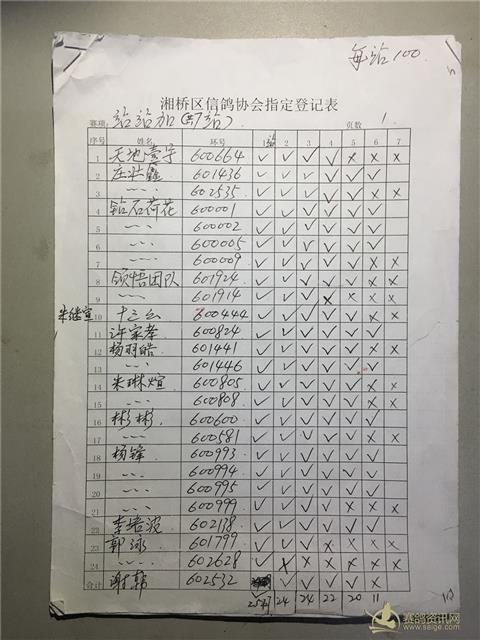 每站100
湘桥区信鸽协会指定登记表
赛项: 站站加(共7站) 页数 1
序号 姓名 环号 1站 2 3 4 5 6 7
1 天地壹宇 600664 ✓ ✓ ✓ ✓ × × ×
2 庄壮鑫 601436 ✓ ✓ ✓ ✓ ✓ ✓
3 〃 602535 ✓ ✓ ✓ ✓ ✓ × ×
4 钻石荷花 600001 ✓ ✓ ✓ ✓ ✓ ✓
5 〃 600002 ✓ ✓ ✓ ✓ ✓ ✓
6 〃 600005 ✓ ✓ ✓ ✓ ✓ ✓
7 〃 600009 ✓ ✓ ✓ ✓ ✓ × ×
8 领悟团队 601924 ✓ ✓ ✓ ✓ ✓ × ×
9 〃 601914 ✓ ✓ ✓ × × × ×
朱继宣 10 十三幺 600444 ✓ ✓ ✓ ✓ ✓ × ×
11 许家孝 600824 ✓ ✓ ✓ ✓ ✓ ✓
12 杨羽皓 601441 ✓ ✓ ✓ ✓ ✓ × ×
13 〃 601446 ✓ ✓ ✓ ✓ ✓ ✓
14 朱琳煊 600805 ✓ ✓ ✓ ✓ ✓ × ×
15 〃 600808 ✓ ✓ ✓ ✓ ✓ × ×
16 彬彬 600600 ✓ ✓ ✓ ✓ ✓ ✓
17 〃 600581 ✓ ✓ ✓ ✓ ✓ × ×
18 杨锋 600993 ✓ ✓ ✓ ✓ ✓ ✓
19 〃 600994 ✓ ✓ ✓ ✓ ✓ ×
20 〃 600995 ✓ ✓ ✓ ✓ ✓ ✓
21 〃 600999 ✓ ✓ ✓ ✓ × × ×
22 李培波 602138 ✓ ✓ ✓ ✓ ✓ ✓
23 郭泳 601799 ✓ ✓ ✓ × × × ×
24 〃 602628 ✓ × × × × × ×
合计 谢韩 602532 ✓ ✓ ✓ ✓ ×
24 24 22 20 11
赛鸽资讯网
www.saige.com